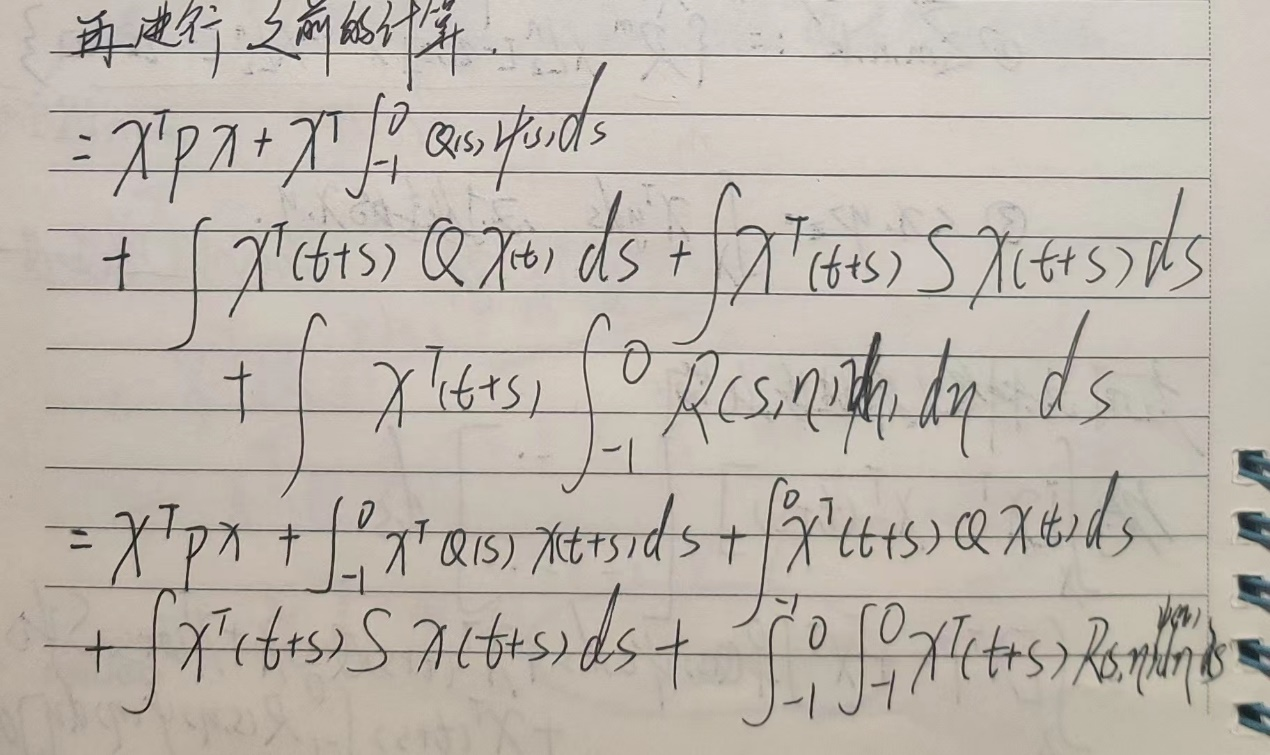 再进行之前的计算.
= x^T p x + x^T ∫_{-1}^{0} Q(s) ψ(s) ds
+ ∫ x^T(t+s) Q x(t) ds + ∫ x^T(t+s) S x(t+s) ds
+ ∫ x^T(t+s) ∫_{-1}^{0} R(s,η) dη ds
= x^T p x + ∫_{-1}^{0} x^T Q(s) x(t+s) ds + ∫_{-1}^{0} x^T(t+s) Q x(t) ds
+ ∫ x^T(t+s) S x(t+s) ds + ∫_{-1}^{0} ∫_{-1}^{0} x^T(t+s) R(s,η) ψ(η) dη ds